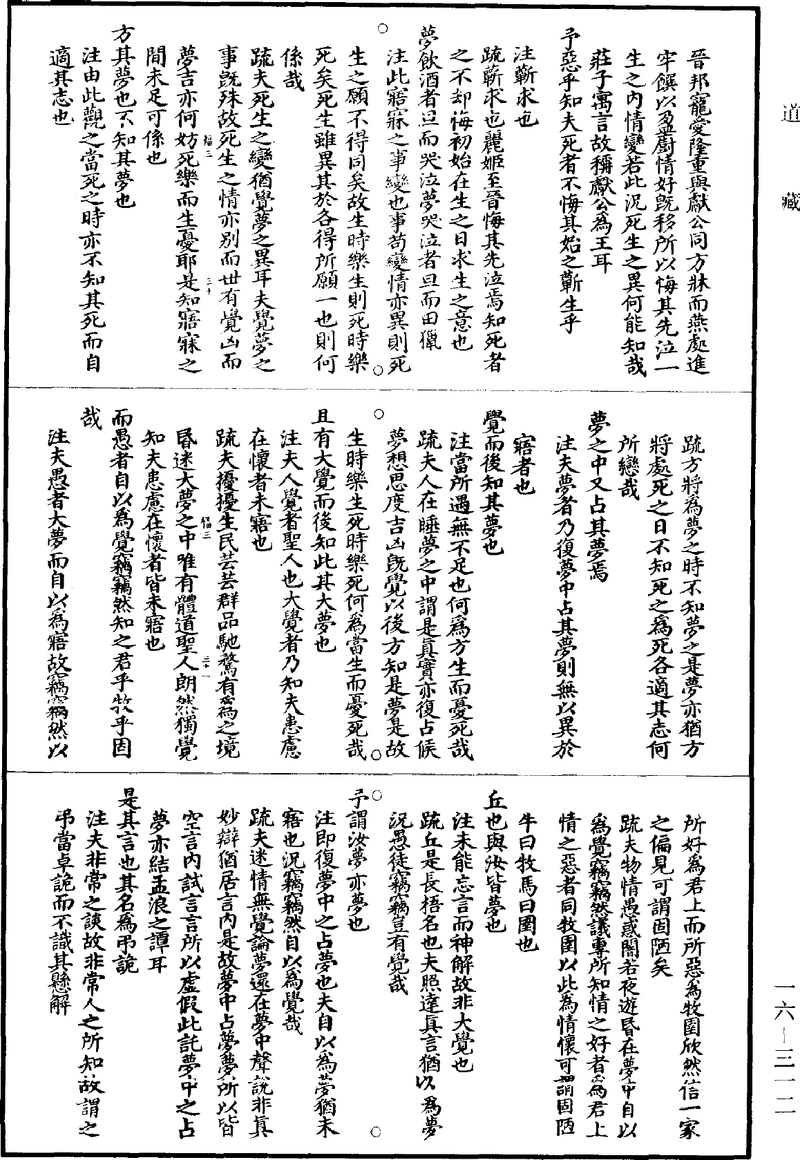 道藏
晉邦寵愛隆重與獻公同方牀而燕處進
牢饌以盈廚情好旣移所以悔其先泣一
生之內情變若此況死生之異何能知哉
莊子寓言故稱獻公為王耳
予惡乎知夫死者不悔其始之蘄生乎
注蘄求也
疏蘄求也麗姬至晉悔其先泣焉知死者
之不却悔初始在生之日求生之意也
夢飲酒者旦而哭泣夢哭泣者旦而田獵
注此寤寐之事變也事苟變情亦異則死
生之願不得同矣故生時樂生則死時樂
死矣死生雖異其於各得所願一也則何
係哉
疏夫死生之變猶覺夢之異耳夫覺夢之
事旣殊故死生之情亦別而世有覺凶而
夢吉亦何妨死樂而生憂耶是知寤寐之
間未足可係也
方其夢也不知其夢也
注由此觀之當死之時亦不知其死而自
適其志也
疏方將為夢之時不知夢之是夢亦猶方
將處死之日不知死之為死各適其志何
所戀哉
夢之中又占其夢焉
注夫夢者乃復夢中占其夢則無以異於
寤者也
覺而後知其夢也
注當所遇無不足也何為方生而憂死哉
疏夫人在睡夢之中謂是真實亦復占候
夢想思度吉凶旣覺以後方知是夢是故
生時樂生死時樂死何為當生而憂死哉
且有大覺而後知此其大夢也
注夫人覺者聖人也大覺者乃知夫患慮
在懷者未寤也
疏夫擾擾生民芸芸群品馳騖有為之境
昏迷大夢之中唯有體道聖人朗然獨覺
知夫患慮在懷者皆未寤也
而愚者自以為覺竊竊然知之君乎牧乎固
哉
注夫愚者大夢而自以為寤故竊竊然以
所好為君上而所惡為牧圉欣然信一家
之偏見可謂固陋矣
疏夫物情愚惑闇若夜遊昏在夢中自以
為覺竊竊然議專所知情之好者為君上
情之惡者同牧圉以此為情懷可謂固陋
牛曰牧馬曰圉也
丘也與汝皆夢也
注未能忘言而神解故非大覺也
疏丘是長梧名也夫照達真言猶以為夢
況愚徒竊竊豈有覺哉
予謂汝夢亦夢也
注即復夢中之占夢也夫自以為夢猶未
寤也況竊竊然自以為覺哉
疏夫迷情無覺論夢還在夢中聲說非真
妙辯猶居言內是故夢中占夢夢所以皆
空言內試言言所以虛假此託夢中之占
夢亦結孟浪之譚耳
是其言也其名為弔詭
注夫非常之談故非常人之所知故謂之
弔當卓詭而不識其懸解
一六—三一二